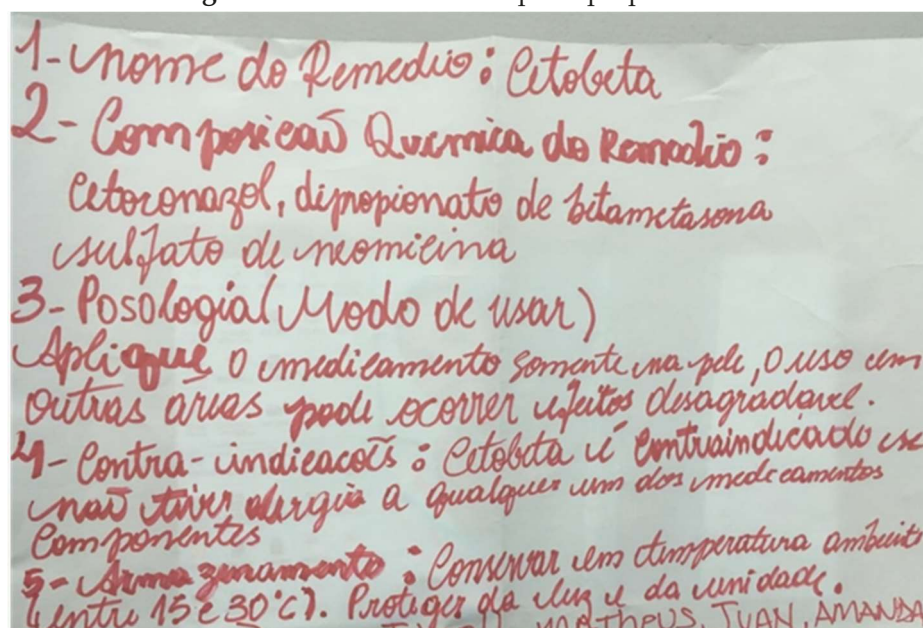 1- nome do Remedio: Cetobeta
2- Composicaõ Quemica do Remedio:
Cetoconazol, dipropionato de bitametasona
sulfato de neomicina
3- Posologia (Modo de usar)
Aplique o medicamento somente na pele, O uso em
outras areas pode ocorrer efeitos desagradavel.
4- Contra-indicacoẽs: Cetobeta é contraindicado se
naõ tiver alergia a qualquer um dos medicamentos
Componentes
5- Armazenamento: Conservar em temperatura ambiente
(entre 15 e 30°C). Proteger da luz e da unidade.
MATHEUS, JUAN, AMANDA